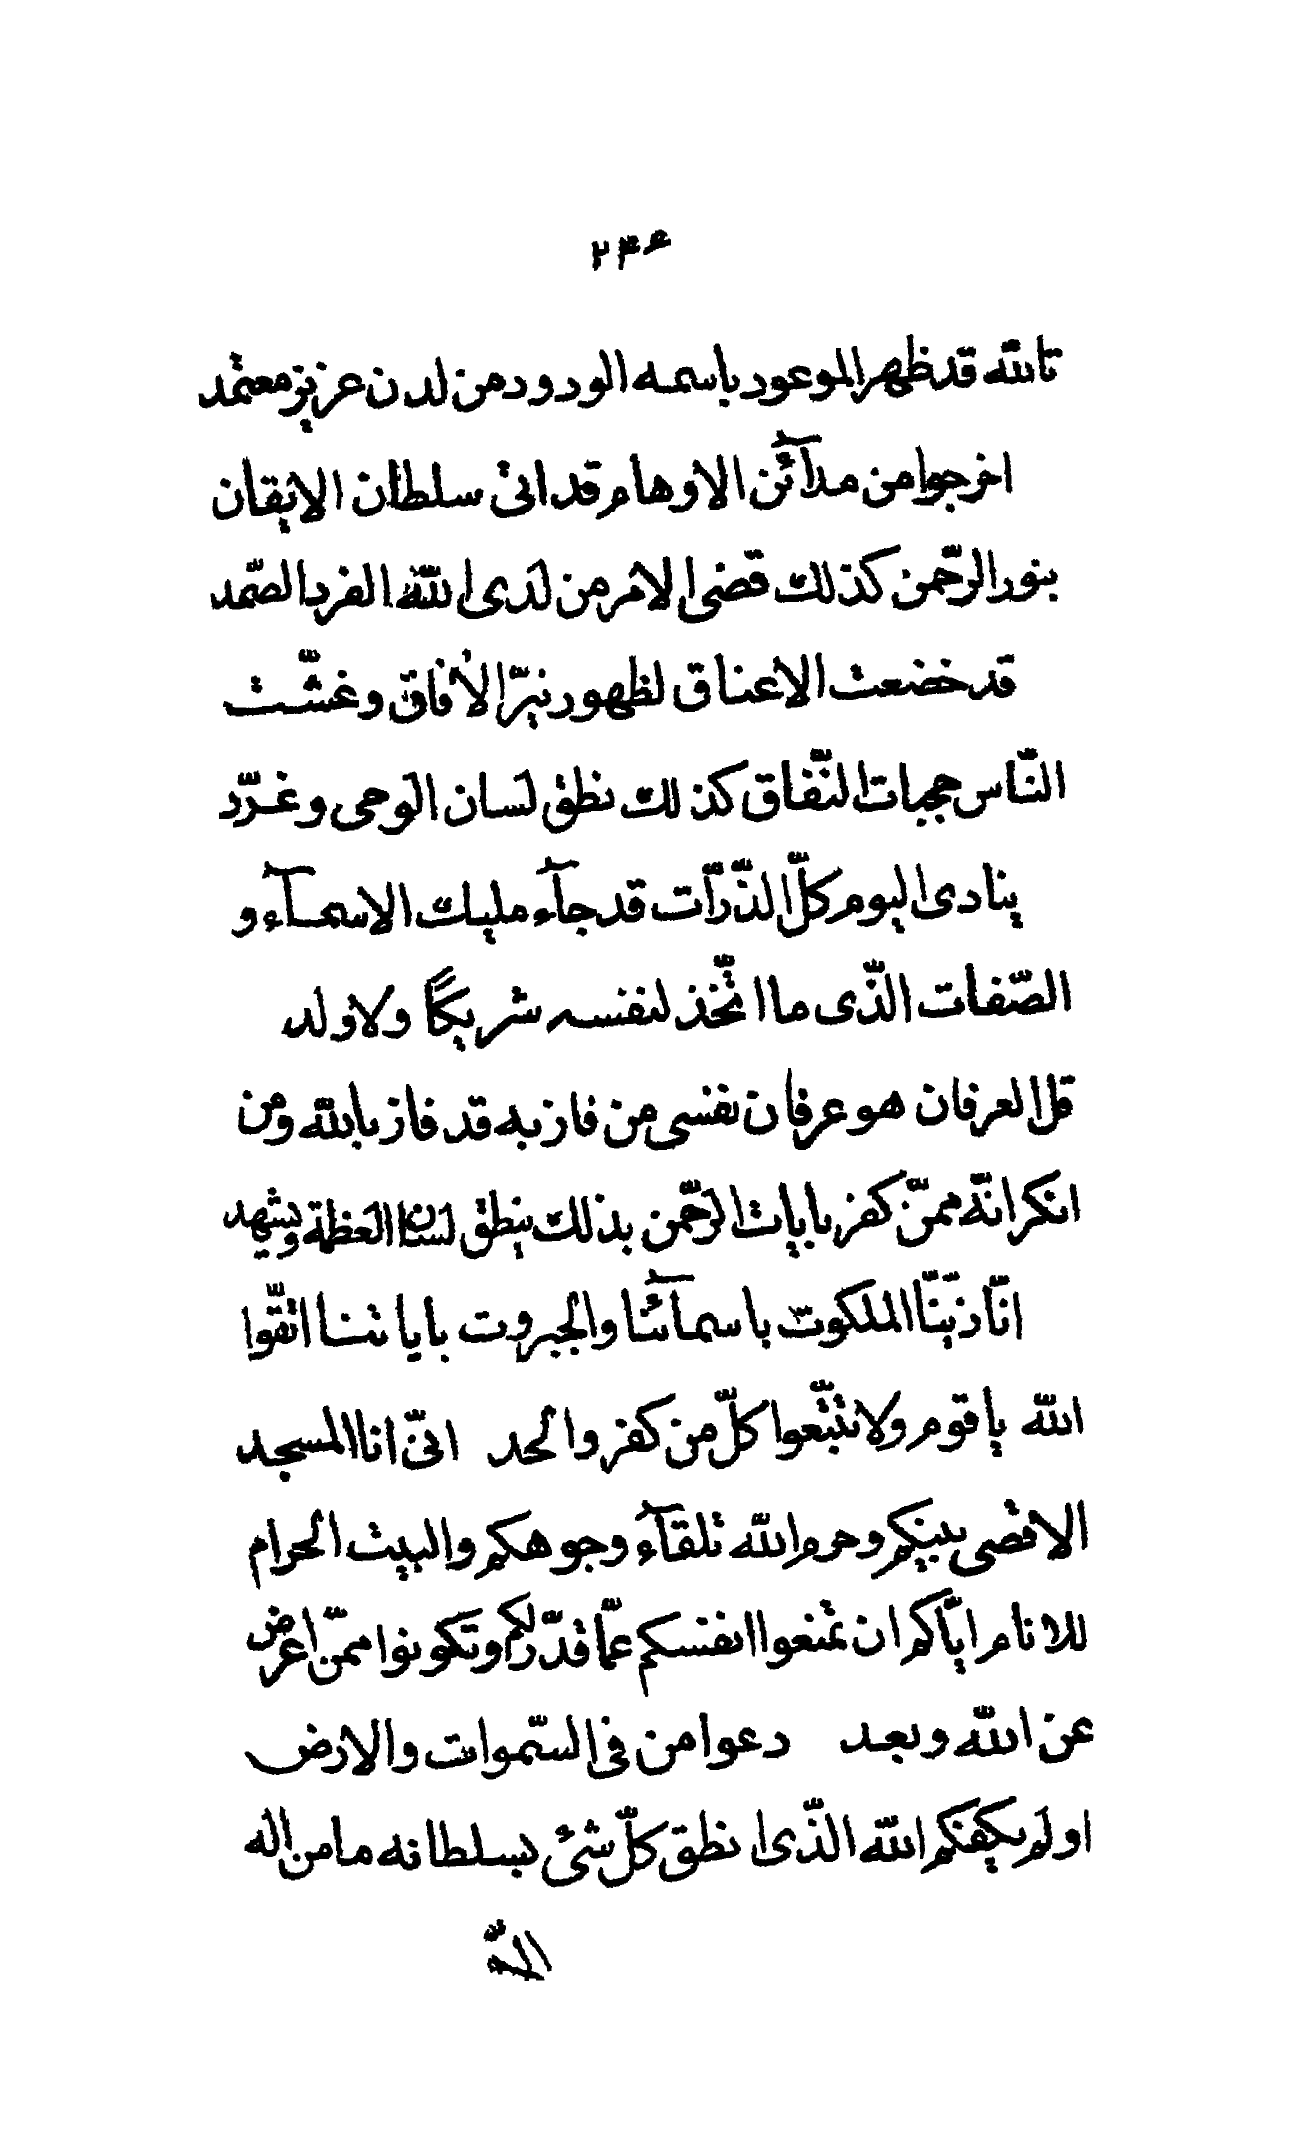 ۲۳۴
تاللّه قد ظهر الموعود باسمه الودود من لدن عزیز معتمد
اخرجوا من مدآئن الاوهام قد اتیٰ سلطان الایقان
بنور الرّحمن کذلک قضی الامر من لدی اللّه الفرد الصّمد
قد خضعت الاعناق لظهور نیّر الافاق و غشّت
النّاس حجبات النّفاق کذلک نطق لسان الوحی و غرّد
ینادی الیوم کلّ الذّرّات قد جآء ملیک الاسمآء و
الصّفات الذّی ما اتّخذ لنفسه شریکًا ولا ولد
قل العرفان هو عرفان نفسی من فاز به قد فاز باللّه ومن
انکر انّه ممّن کفر بایات الرّحمن بذلک ینطق لسان العظمة ویشهد
انّا زیّنّا الملکوت باسمآئنا والجبروت بایاتنا اتّقوا
اللّه یا قوم ولا تتّبعوا کلّ من کفر والحد انّی انا المسجد
الاقصی بینکم وحرم اللّه تلقآء وجوهکم والبیت الحرام
للانام ایّاکم ان تمنعوا انفسکم عمّا قدّر لکم وتکونوا ممّن اعرض
عن اللّه وبعد دعوا من فی السّموات والارض
اولم یکفکم اللّه الذّی نطق کلّ شئ بسلطانه ما من اله
الّا